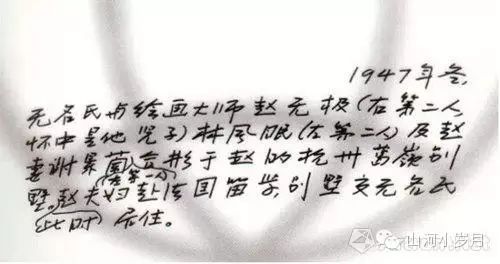 1947年冬,
无名氏与绘画大师赵无极(右第二人,
怀中是他儿子)林风眠(左第二人)及赵
妻谢景蘭合影于赵的杭州葛嶺别
墅。赵夫妇赴法国留学,别墅交无名氏
此时 居住。
山河小岁月